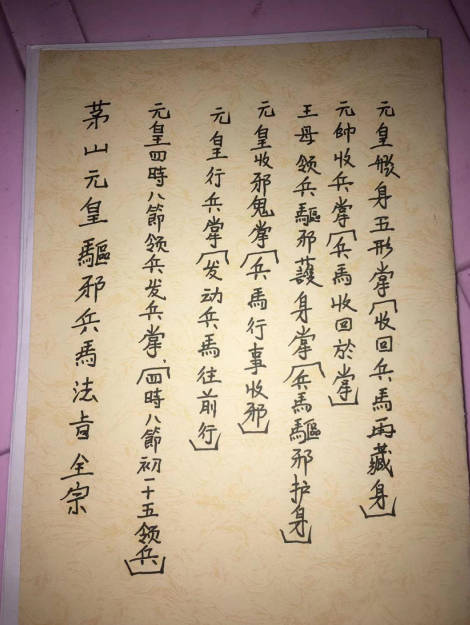 茅山元皇驅邪兵馬法旨全宗
元皇四時八節领兵发兵掌、[四時八節初一十五领兵]
元皇行兵掌[发动兵馬往前行]
元皇收邪鬼掌[兵馬行事收邪]
王母领兵驅邪護身掌[兵馬驅邪护身]
元帥收兵掌[兵馬收回於掌]
元皇身五形掌[收回兵馬再藏身]